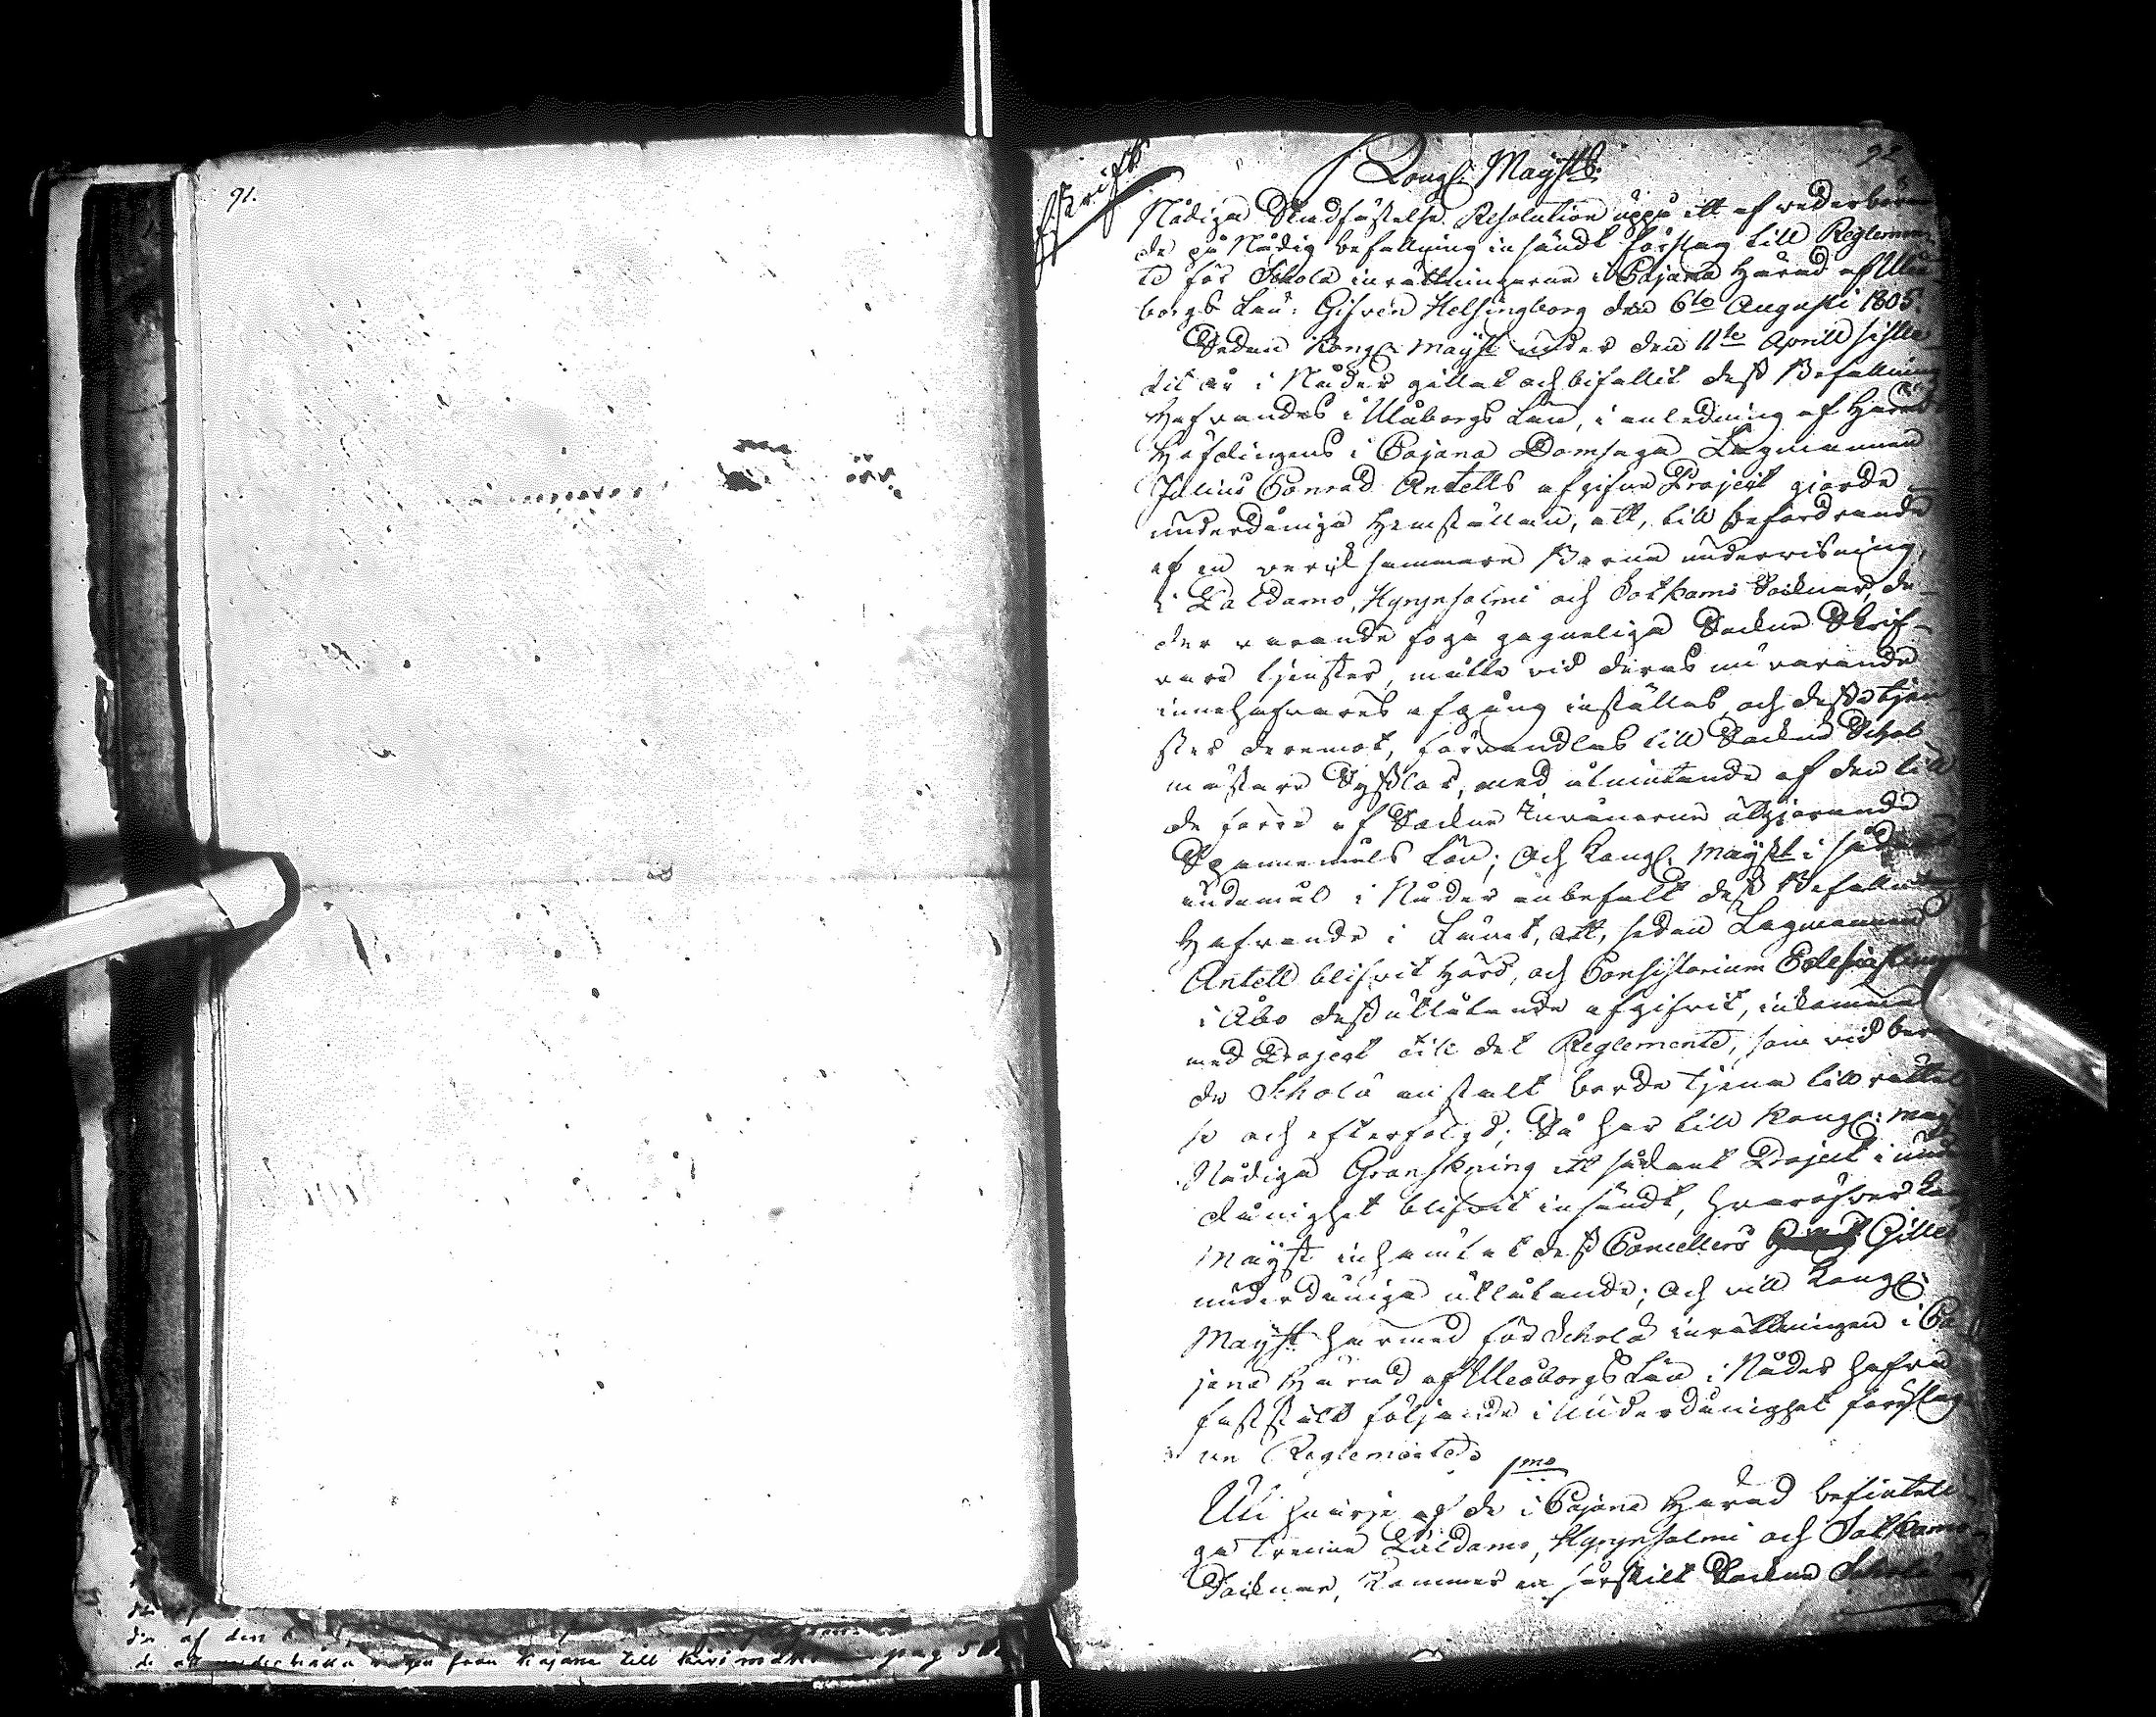 91.
92
Afskrift
Kongl. Maÿsts
Nådiga Stadfästelse Resolution uppå ett af vederböran
de på Nådig befallning insändt förslag till Reglemen
te för Schola inrättningarne i Cajana Härad af Uleå
borgs Län: Gifven Helsingborg den 6te Augusti 1805.
Sedan Kongl. Maÿst under den 11te Aprill sistle
dit år i Nåder gillat och bifallit dess Befallning
Hafvandes i Ulåborgs Län, i anledning af Härads
Höfdingens i Cajana Domsaga Lagmannen
Julius Conrad Antells afgifne Project gjorde
underdåniga Hemställan, att, till befordrande
af en verksammare Barna undervisning,
i Paldamo, Hyrynsalmi och Sotkamo Socknar, de
der varande föga gagneliga Sockne Skrif-
vare tjenster, måtte vid deras nu varande
innehafvares afgång inställas, och desse tjen
ster deremot, förvandlas till Sockne Schol
mästare Sysslor, med åtnjutande af den till
de förre af Sockne Invånarne utgjorande
Spannemåls Lön; och Kongl. Maÿst i sådant
ändamål i Nåder anbefalt dess Befallning
Hafvande i Länet, att, sedan Lagmannen
Antell blifvit hörd, och Consistorium Eclesiasticum
i Åbo dess utlåtande afgifvit, inkomma
med Project till det Reglemente, som vid berör
de Schola anstalt borde tjena till rättel
se och efterföljd; Så har till Kongl: Maÿ
Nådiga Granskning ett sådant Project i under
dånighet blifvit insändt, hvaröfver Kon
Maÿst inhämtat dess Cancellers Gille
underdåniga utlåtande; och vill Kongl:
Maÿst härmed för Schola inrättningen i Ca
jana Härad af Uleåborgs Län i Nåder hafva
fastställt följande i underdånighet föreslag
ne Reglemente:
1mo
Uti hvarje af de i Cajana Härad befinteli
ga trenne Paldamo, Hyrynsalmi och Sotkamo
Socknar, kommer en särskilt Sockne Schola
af den
från Kajana till pag 5